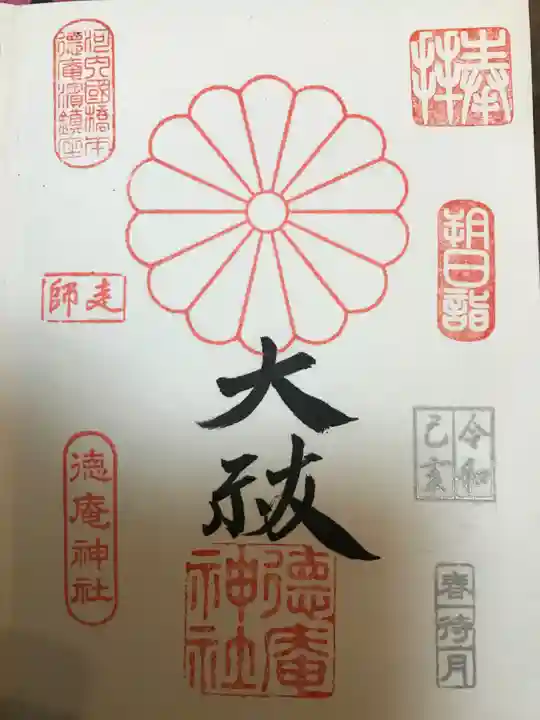 奉拝
朔日詣
令和
己亥
春待月
大祓
徳庵
神社
河内國橋本
徳庵濱鎮座
走師
徳庵神社